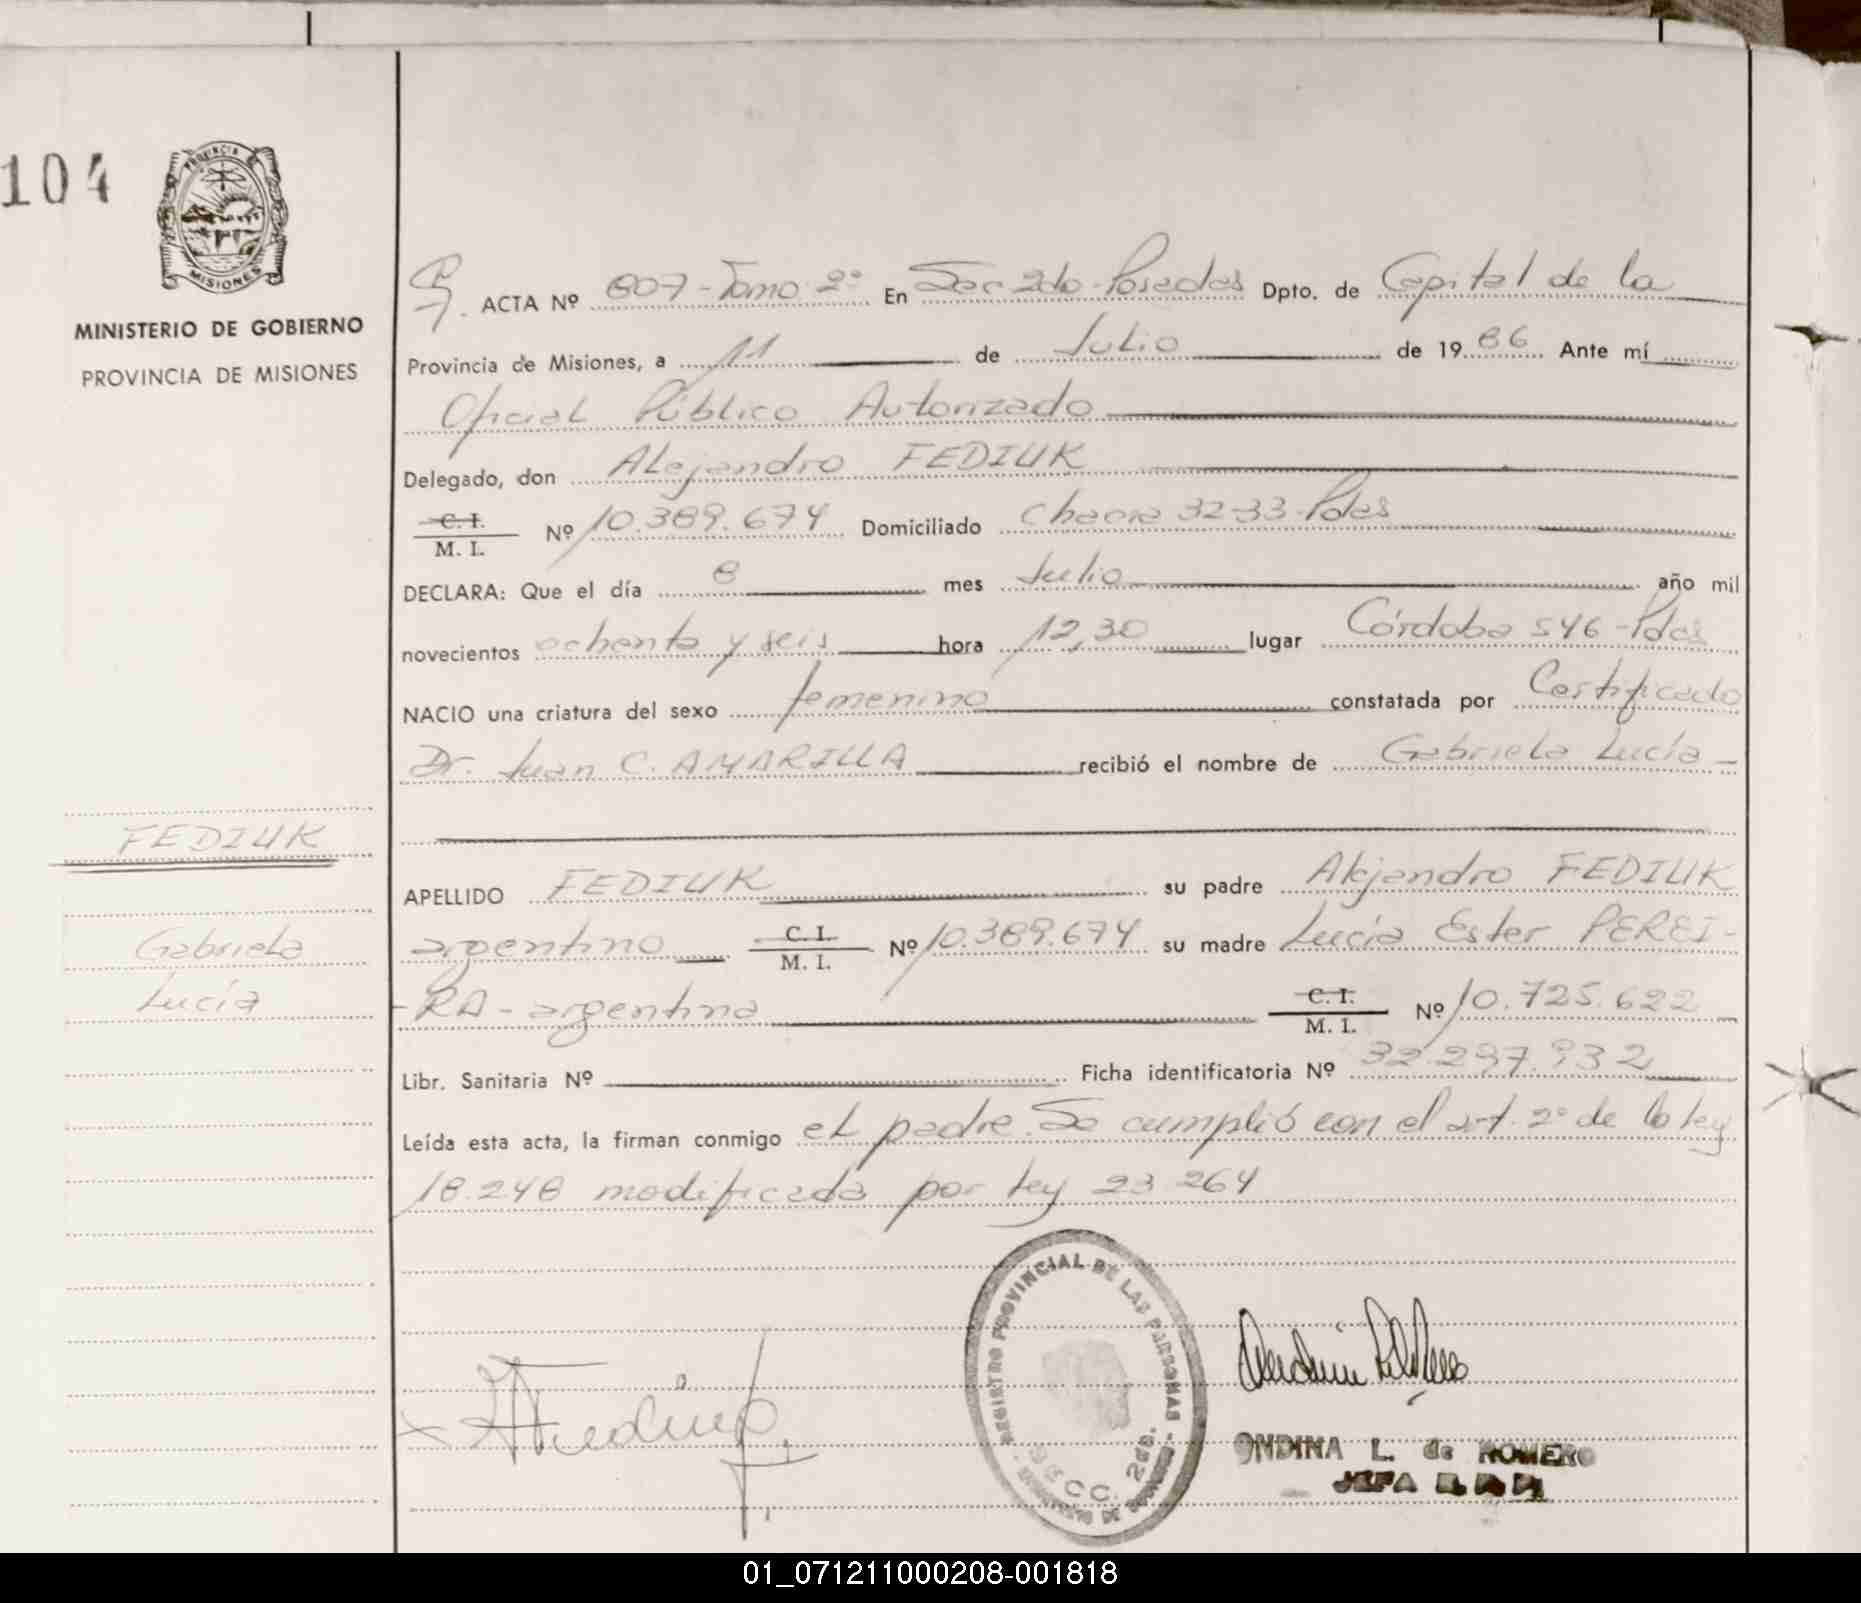 104
PROVINCIA
MISIONES
MINISTERIO DE GOBIERNO
PROVINCIA DE MISIONES
ACTA Nº 807 - Tomo 2º En Sec 2do - Posadas Dpto. de Capital de la
Provincia de Misiones, a 11 de Julio de 1986 Ante mí
Oficial Público Autorizado
Delegado, don Alejandro FEDIUK
C. I.
M. I. Nº 10.389.674 Domiciliado Chacra 32-33-Pdas
DECLARA: Que el día 8 mes Julio año mil
novecientos ochenta y seis hora 12,30 lugar Córdoba 546 - Pdas
NACIO una criatura del sexo femenino constatada por Certificado
Dr. Juan C. AMARILLA recibió el nombre de Gabriela Lucía -
FEDIUK
Gabriela
Lucía
APELLIDO FEDIUK su padre Alejandro FEDIUK
argentino C. I.
M. I. Nº 10.389.674 su madre Lucía Ester PEREI-
-RA - argentina C. I.
M. I. Nº 10.725.622
Libr. Sanitaria Nº Ficha identificatoria Nº 32.297.932
Leída esta acta, la firman conmigo el padre. Se cumplió con el art. 2º de la ley
18.248 modificada por ley 23.264
REGISTRO PROVINCIAL DE LAS PERSONAS
SECC. 2da.
ONDINA L. de ROMERO
JEFA
01_071211000208-001818